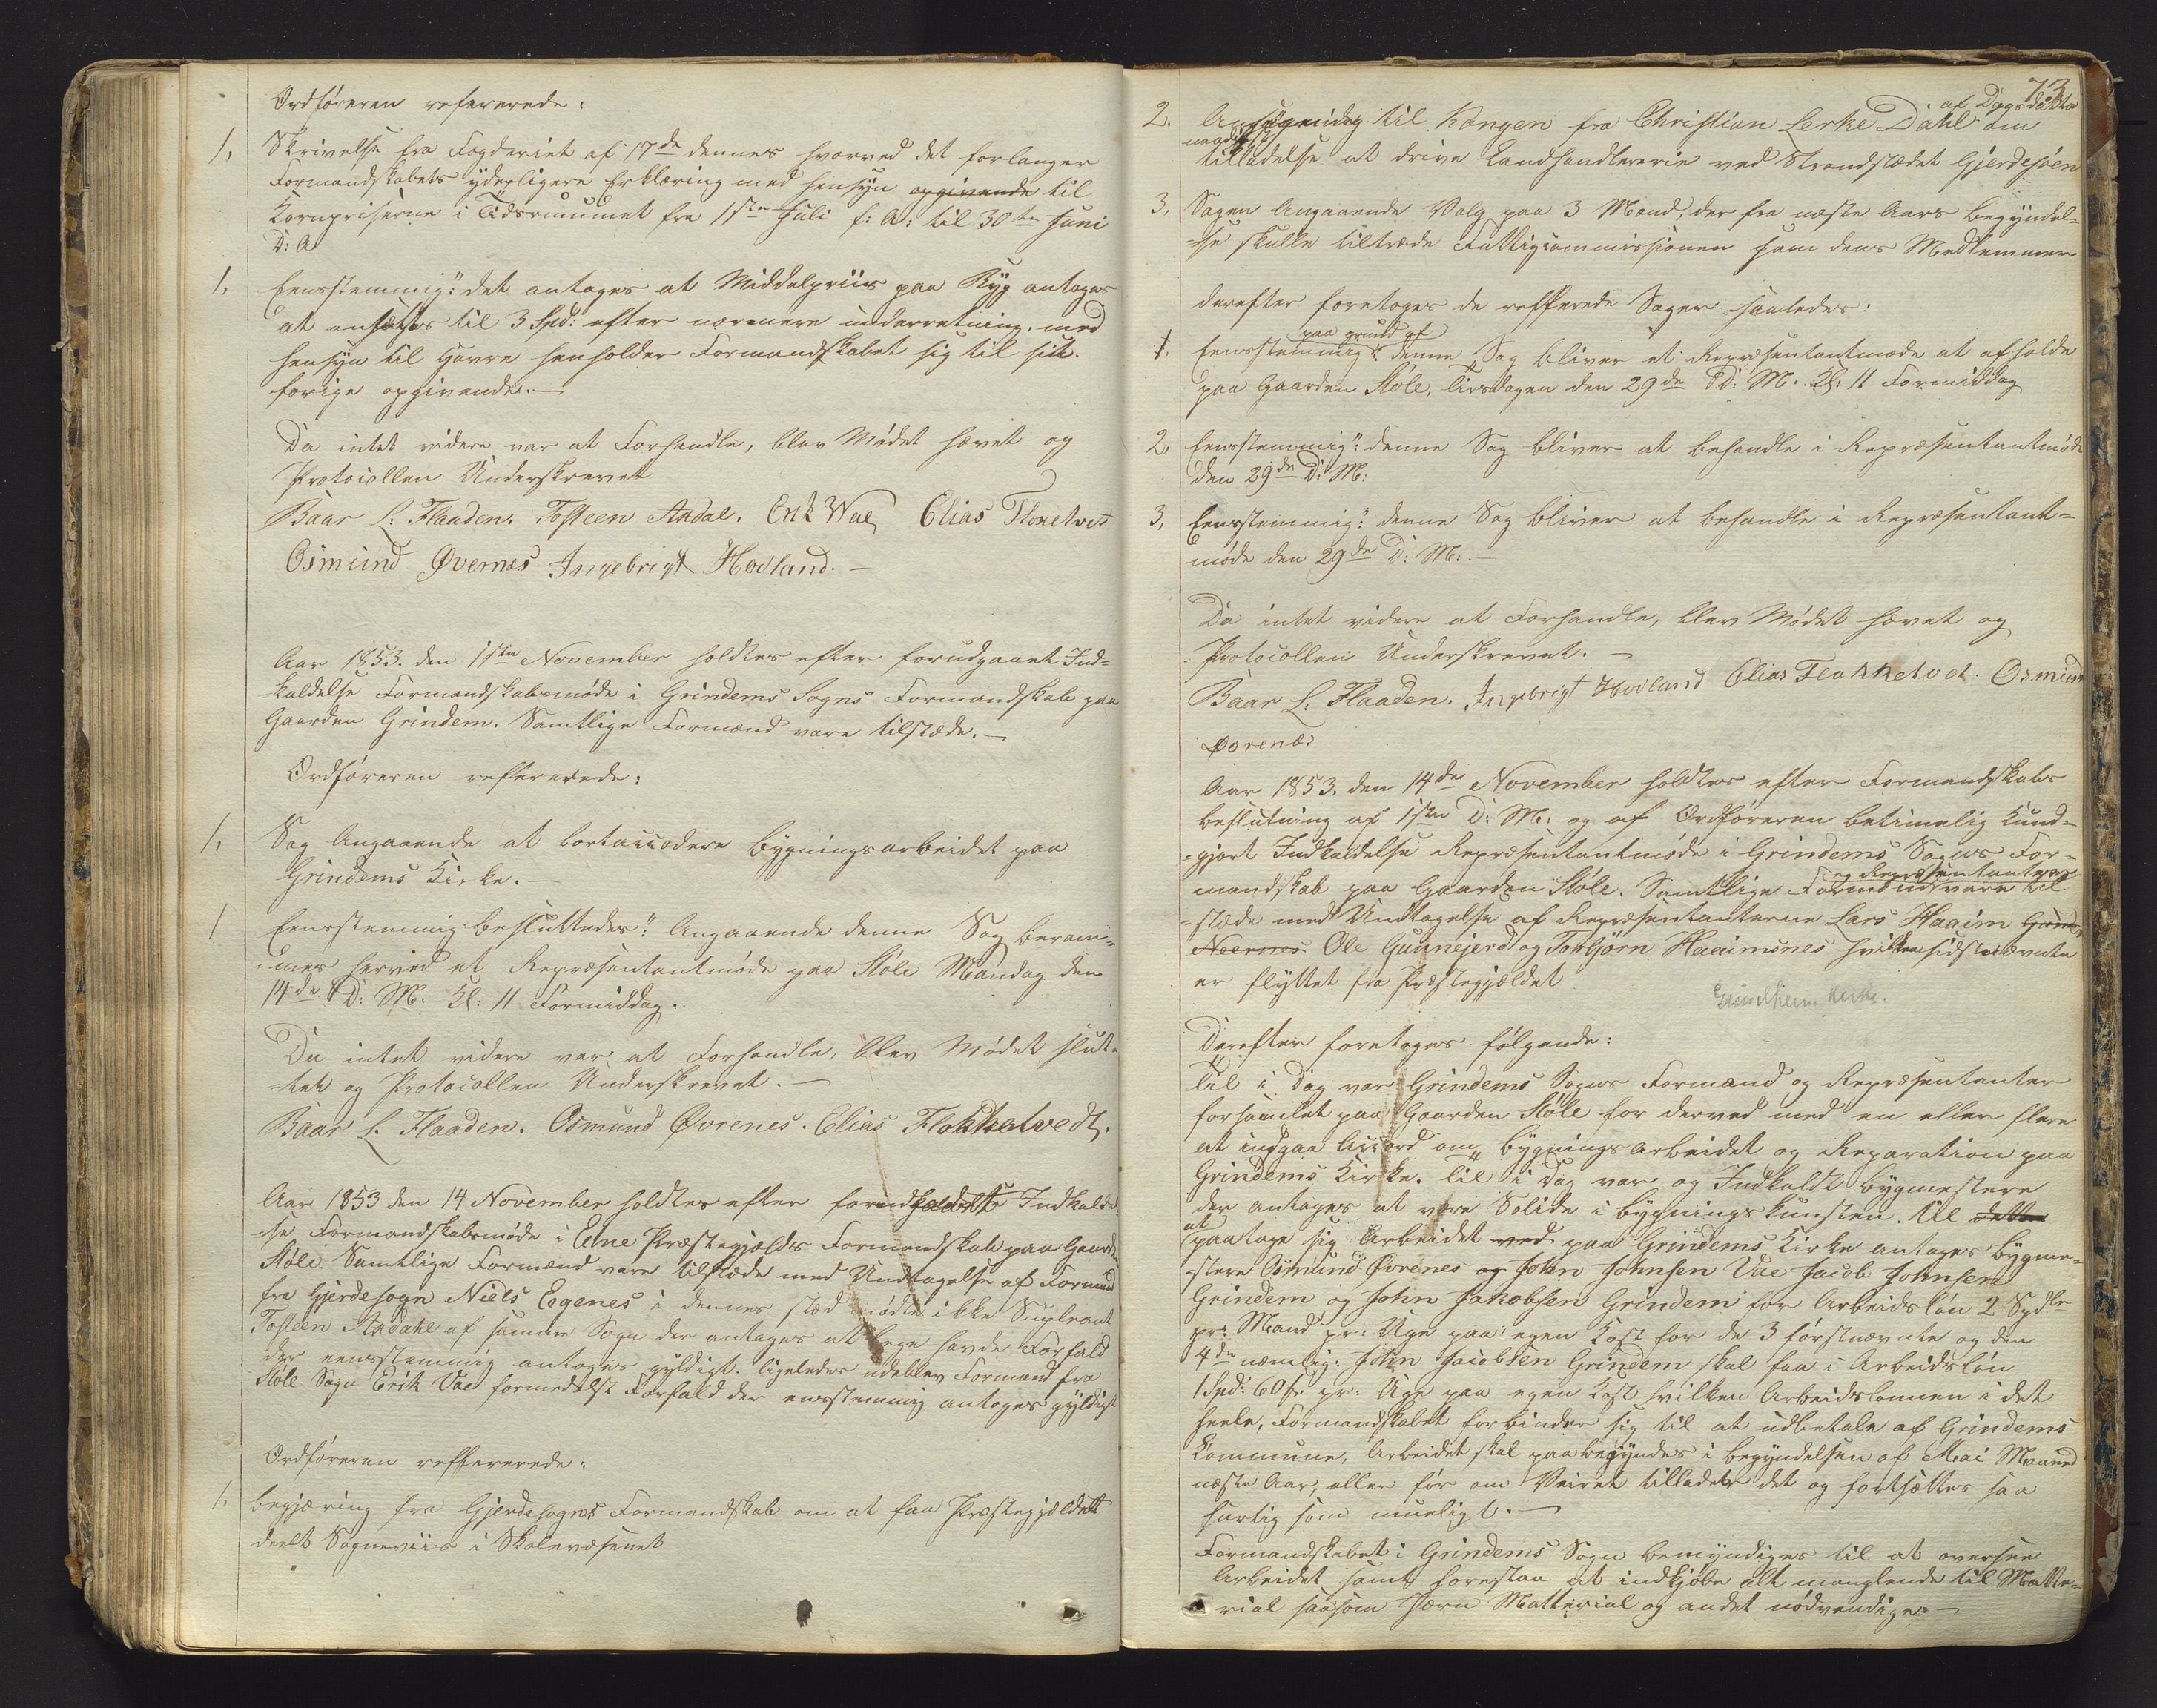 Ordføreren refererede:
1, Skrivelse fra Fogderiet af 17de dennes hvorved det forlanger
Formandskabets yderligere Erklæring med hensyn opgivende til
Kornpriserne i Tidsrummet fra 1ste Juli f: A: til 30te Juni
D: A
1, Eensstemmig: det antages at Middelpriis paa Byg antages
at ansættes til 3 Spd: efter nærmere underretning, med
hensyn til Havre henholder Formandskabet sig til sit
forige opgivende.—
Da intet videre var at Forhandle, blev Mødet hævet og
Protocollen Underskrevet
Baar L: Flaaden. Tosteen Axdal. Erik Wae, Elias
Osmund Øvernes Ingebrigt Hodland.—
Aar 1853. den 1ste November holdtes efter forudgaaet Ind-
kaldelse Formandskabsmøde i Grindems Sogns Formandskab paa
Gaarden Grindem. Samtlige Formænd vare tilstæde.—
Ordføreren reffererede:
1, Sag Angaaende at bortaccodere bygningsarbeidet paa
Grindems Kirke.—
1 Eensstemmig besluttedes: Angaaende denne Sag beram-
-mes herved et Repræsentantmøde paa Støle Mandag den
14de D: M: Kl: 11 Formiddag.
Da intet videre var at Forhandle, blev Mødet slut-
-tet og Protocollen Underskrevet.—
Baar L. Flaaden. Osmund Øvrenes. Elias Flokketvedt.
Aar 1853 den 14 November holdtes efter Indkaldel
-se Formandskabsmøde i Etne Præstegjælds Formandskab paa Gaarden
Støle. Samtlige Formænd vare tilstæde med Undtagelse af Formand
fra Gjerdesogn Niels Egenes i dennes stæd mødte ikke Supleant
Tosteen Axdahl af samme Sogn der antages at have Forfald
der eensstemmig antoges gyldigt. ligeledes udeblev Formand fra
Støle Sogn Erik Vae formedelst Forfald der eensstemmig antoges gyldigt
Ordføreren reffererede:
1. begjæring fra Gjerdesogns Formandskab om at faa Præstegjældet
deelt Sogneviis i Skolevæsenet
73
af Dagsdatto
2. Ansøgning til Kongen fra Christian Lerke Dahl om
naadigst
tilladelse at drive Landhandlererie ved Strandstædet Gjerdesøen
3, Sagen Angaaende Valg paa 3 Mænd, der fra næste Aars begyndel-
-se skulle tiltræde Fattigcommissionen som dens Medlemmer
derefter foretoges de refferede Sager saaledes:
paa grund af
1. Eensstemmig: denne Sag bliver et Repræsentantmøde at afholde
paa Gaarden Støle, Tirsdagen den 29de D: M. Kl: 11 Formiddag
2, Eensstemmig: denne Sag bliver at behandle i Repræsentantmøde
den 29de D: M:
3, Eensstemmig: denne Sag bliver at behandle i Repræsentant-
møde den 29de D: M:.—
Da intet videre at Forhandle, blev Mødet hævet og
Protocollen Underskrevet.—
Baar L. Flaaden. Ingebrigt Hovland Elias Flokketvet. Osmund
Øvrenes
Aar 1853. den 14de November holdtes efter Formandskabs
beslutning af 1ste D: M: og af Ordføreren betimelig Kund-
-gjort Indkaldelse Repræsentantmøde i Grindems Sogns For-
mandskab paa Gaarden Støle. Samtlige Formænd og Repræsentanter vare til
-stæde med Undtagelse af Repræsentanterne Lars Haaim
Neernes Ole Gunnejerd og Torbjørn Haaimsnes hvilken sidstnævnte
er flyttet fra Præstegjældet
Grindheim Kirke.
Derefter foretoges følgende:
Til i Dag var Grindems Sogns Formænd og Repræsentanter
forsamlet paa Gaarden Støle for derved med en eller flere
at indgaa Accord om bygnings arbeidet og Reparation paa
Grindems Kirke. til i Dag var og Indkaldt bygmestere
der antages at være Solide i bygningskunsten. Til dette
at paatage sig Arbeidet ved paa Grindems Kirke antages bygme-
-stere Osmund Øvrenes og John Johnsen Vae Jacob Johnsen
Grindem og John Jakobsen Grindem for Arbeidsløn 2 Spdlr
pr: Mand pr: Uge paa egen Kost for de 3 førstnævnte og den
4de nemlig: John Jacobsen Grindem skal faa i Arbeidsløn
1 Spd: 60 s. pr: Uge paa egen Kost hvilken Arbeidslønnen i det
heele, Formandskabet forbinder sig til at udbetale af Grindems
Kommune, Arbeidet skal paabegyndes i begyndelsen af Mai Maaned
næste Aar, eller før om Veiret tillader det og fortsættes saa
hurtig som mueligt.—
Formandskabet i Grindems Sogn bemyndiges til at oversee
Arbeidet samt forestaa at indkjøbe alt manglende til Matte-
rial saasom Jærn Matterial og andet nødvendiger—